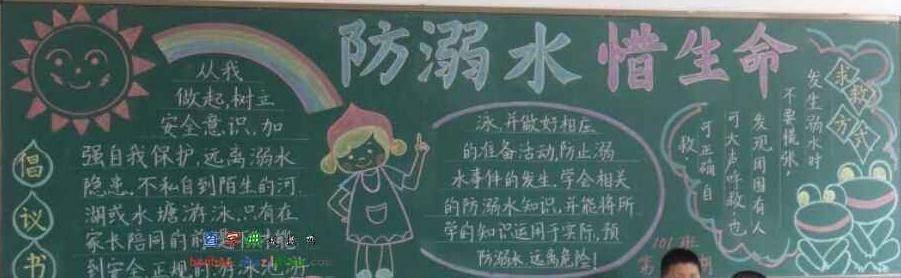 防溺水 惜生命
倡议书
从我
做起,树立
安全意识、加
强自我保护,远离溺水
隐患,不私自到陌生的河、
湖或水塘游泳,只有在
家长陪同的前
到安全正规的游泳池游
泳,并做好相应
的准备活动,防止溺
水事件的发生,学会相关
的防溺水知识,并能将所
学的知识运用于实际,预
防溺水、远离危险!
求救方式
发生溺水时
不要慌张,
发现周围有人
可大声呼救,也
可正确自
救.
101班
第 期